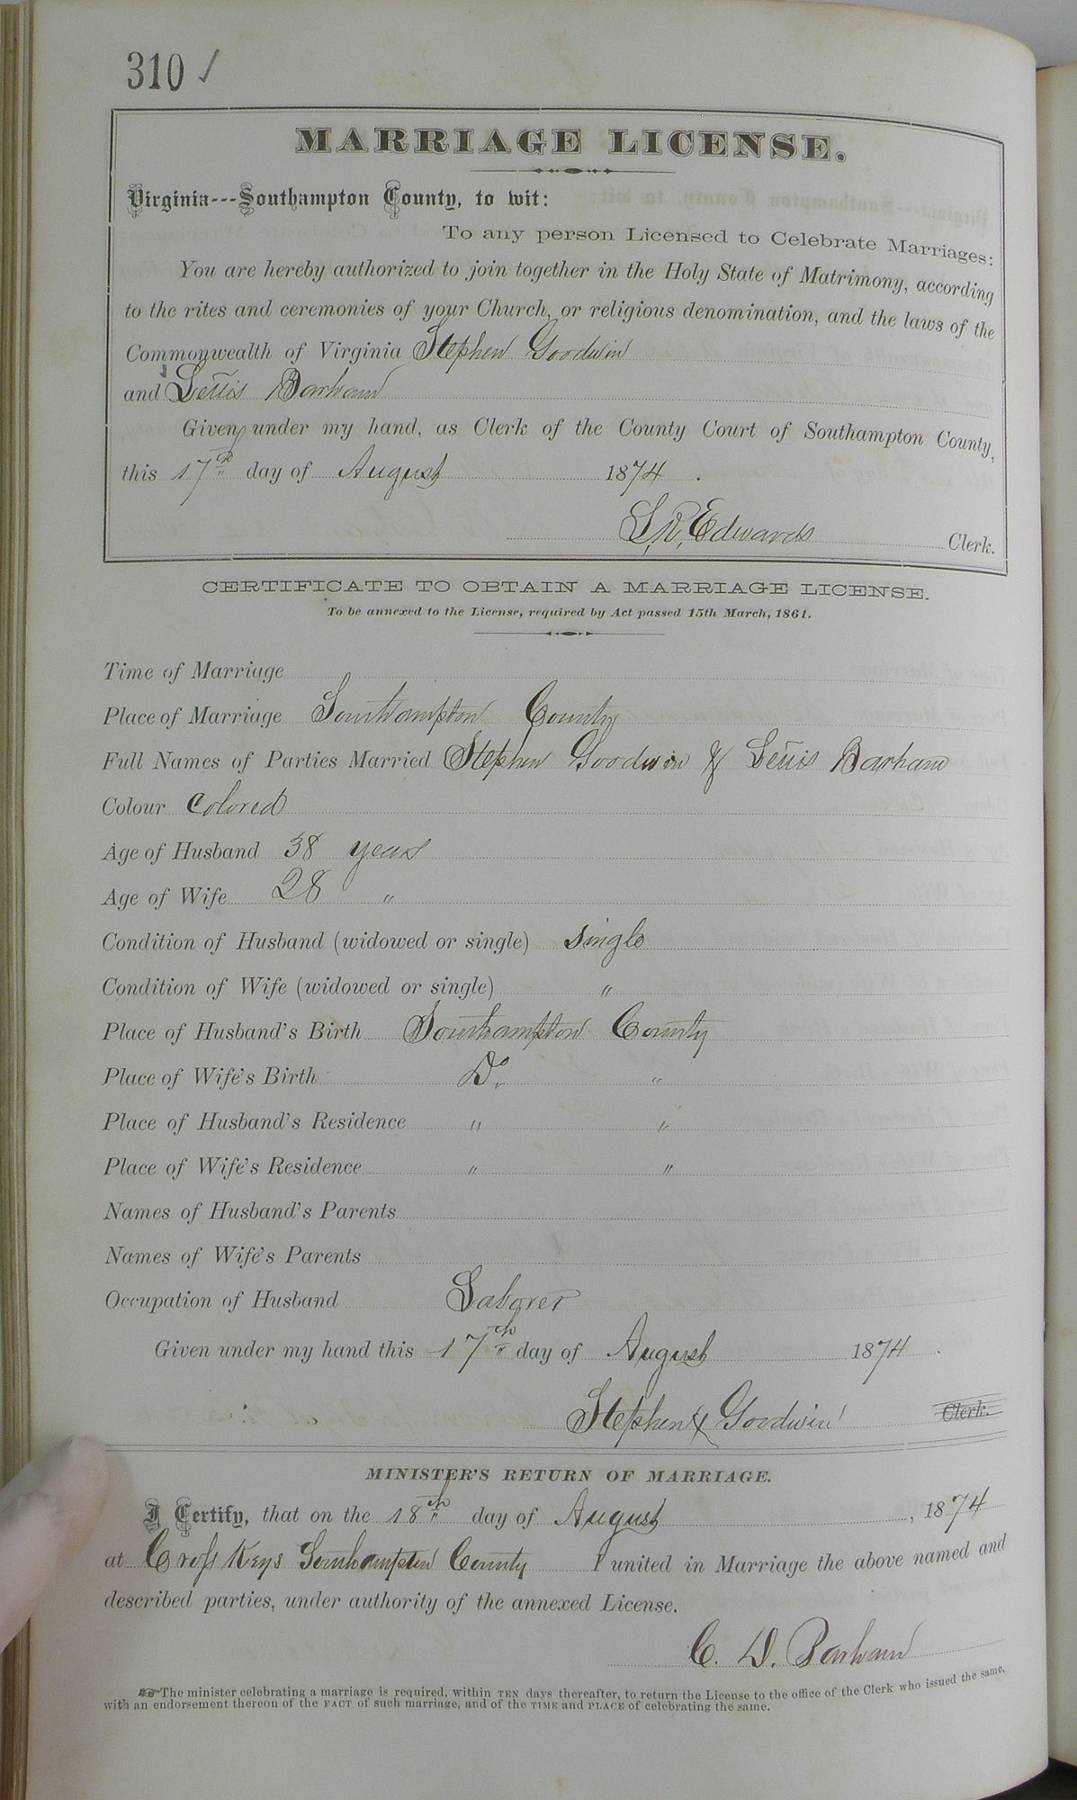 310 ✓
MARRIAGE LICENSE.
Virginia---Southampton County, to wit:
To any person Licensed to Celebrate Marriages:
You are hereby authorized to join together in the Holy State of Matrimony, according
to the rites and ceremonies of your Church, or religious denomination, and the laws of the
Commonwealth of Virginia Stephen Goodwin
and Lettis Barham
Given under my hand, as Clerk of the County Court of Southampton County,
this 17th day of August 1874.
L. R. Edwards Clerk.
CERTIFICATE TO OBTAIN A MARRIAGE LICENSE.
To be annexed to the License, required by Act passed 15th March, 1861.
Time of Marriage
Place of Marriage Southampton County
Full Names of Parties Married Stephen Goodwin & Lettis Barham
Colour Colored
Age of Husband 38 years
Age of Wife 28 "
Condition of Husband (widowed or single) single
Condition of Wife (widowed or single) "
Place of Husband's Birth Southampton County
Place of Wife's Birth Do. "
Place of Husband's Residence " "
Place of Wife's Residence " "
Names of Husband's Parents
Names of Wife's Parents
Occupation of Husband Laborer
Given under my hand this 17th day of August 1874.
Stephen X Goodwin Clerk.
MINISTER'S RETURN OF MARRIAGE.
I Certify, that on the 18th day of August, 1874
at Cross Keys Southampton County I united in Marriage the above named and
described parties, under authority of the annexed License.
C. D. Barham
The minister celebrating a marriage is required, within TEN days thereafter, to return the License to the office of the Clerk who issued the same,
with an endorsement thereon of the FACT of such marriage, and of the TIME and PLACE of celebrating the same.